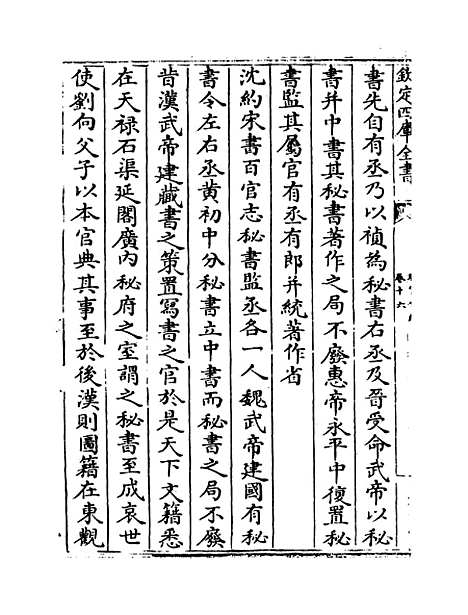 欽定四庫全書
卷十六
書先自有丞乃以禎為秘書右丞及晉受命武帝以秘
書并中書其秘書著作之局不廢惠帝永平中復置秘
書監其屬官有丞有郎并統著作省
沈約宋書百官志秘書監丞各一人魏武帝建國有秘
書令左右丞黄初中分秘書立中書而秘書之局不廢
昔漢武帝建藏書之策置寫書之官於是天下文籍悉
在天禄石渠延閣廣内秘府之室謂之秘書至成哀世
使劉向父子以本官典其事至於後漢則圖籍在東觀